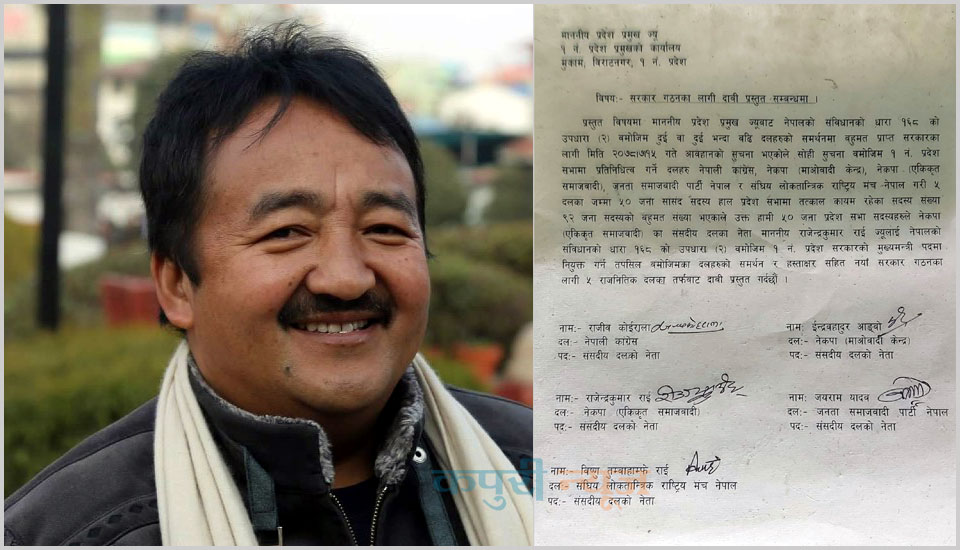 माननीय प्रदेश प्रमुख ज्यू
१ नं. प्रदेश प्रमुखको कार्यालय
मुकाम, विराटनगर, १ नं. प्रदेश
विषय:- सरकार गठनका लागी दावी प्रस्तुत सम्बन्धमा ।
प्रस्तुत विषयमा माननीय प्रदेश प्रमुख ज्यूबाट नेपालको संविधानको धारा १६८ को
उपधारा (२) बमोजिम दुई वा दुई भन्दा बढि दलहरुको समर्थनमा बहुमत प्राप्त सरकारका
लागी मिति २०७८।७।१५ गते आवहानको सुचना भएकोले सोही सुचना बमोजिम १ नं. प्रदेश
सभामा प्रतिनिधित्व गर्ने दलहरु नेपाली कांग्रेस, नेकपा (माओवादी केन्द्र), नेकपा (एकिकृत
समाजवादी), जनता समाजवादी पार्टी नेपाल र संघिय लोकतान्त्रिक राष्ट्रिय मंच नेपाल गरी ५
दलका जम्मा ५० जना सासद सदस्य हाल प्रदेश सभामा तत्काल कायम रहेका सदस्य संख्या
९२ जना सदस्यको बहुमत संख्या भएकाले उक्त हामी ५० जना प्रदेश सभा सदस्यहरुले नेकपा
(एकिकृत समाजवादी) का संसदीय दलका नेता माननीय राजेन्द्रकुमार राई ज्यूलाई नेपालको
संविधानको धारा १६८ को उपधारा (२) बमोजिम १ नं. प्रदेश सरकारको मुख्यमन्त्री पदमा
नियुक्त गर्न तपसिल बमोजिमका दलहरुको समर्थन र हस्ताक्षर सहित नयाँ सरकार गठनका
लागी ५ राजनितिक दलका तर्फबाट दावी प्रस्तुत गर्दछौं ।
नाम:- राजीव कोईराला
दल:- नेपाली कांग्रेस
पद:- संसदीय दलको नेता
नाम:- ईन्द्रबहादुर आङ्बो
दल:- नेकपा (माओवादी केन्द्र)
पद:- संसदीय दलको नेता
नाम:- राजेन्द्रकुमार राई
दल:- नेकपा (एकिकृत समाजवादी)
पद:- संसदीय दलको नेता
नाम:- जयराम यादव
दल:- जनता समाजवादी पार्टी नेपाल
पद:- संसदीय दलको नेता
नाम:- विष्ण तुम्बाहाम्फे राई
दल:- संघिय लोकतान्त्रिक राष्ट्रिय मंच नेपाल
पद:- संसदीय दलको नेता
कपुरी न्यूज